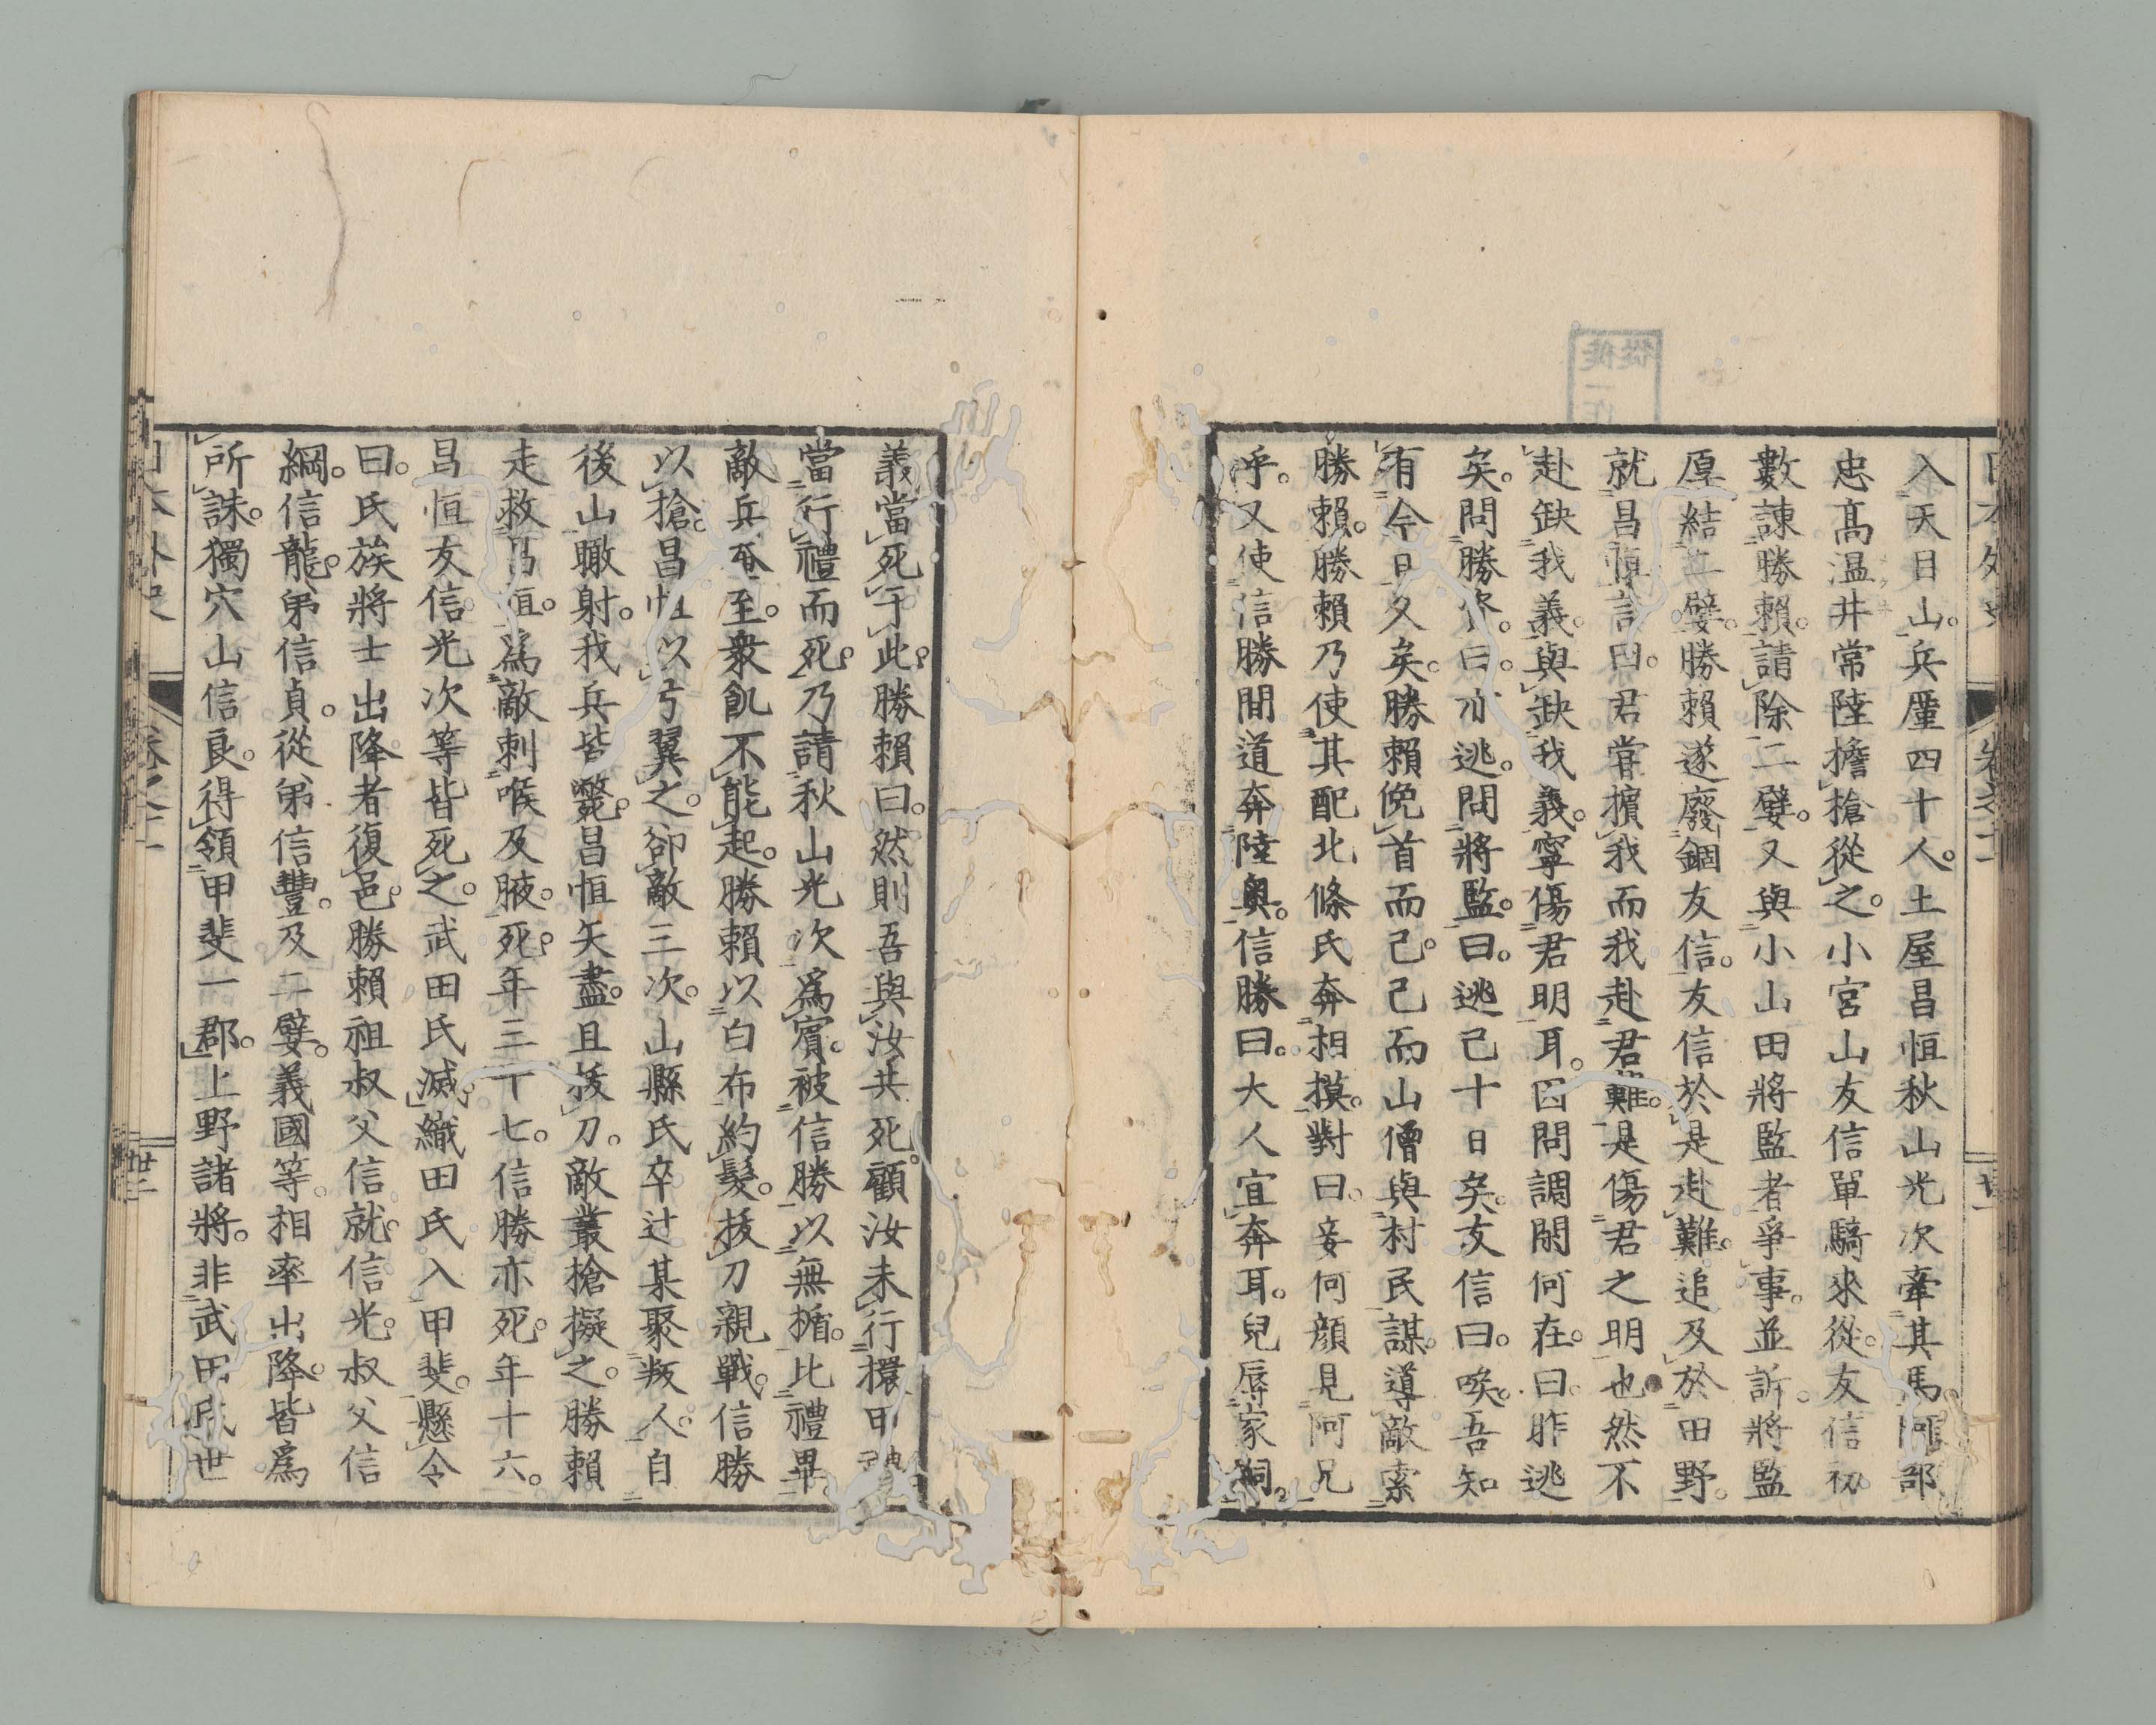 入天日山。兵廑四十人。土屋昌恒秋山光次牽其馬。阿部
忠高温井常陸擔槍從之。小宮山友信單騎來從。友信初
數諫勝賴。請除二嬖。又與小山田將監者爭事。並訴。將監
厚結二嬖。勝賴遂廢錮友信。友信於是赴難。追及於田野。
就昌恒言曰。君嘗擯我而我赴君難。是傷君之明也。然不
赴缺我義。與缺我義。寧傷君明耳。因問調閒何在。曰昨逃
矣。問勝資。曰。亦逃。問將監。曰。逃已十日矣。友信曰。唉。吾知
有今日久矣。勝賴俛首而已。已而山僧與村民謀。導敵索
勝賴。勝賴乃使其配北條氏奔相摸。對曰。妾何顏見阿兄
乎。又使信勝間道奔陸奧。信勝曰。大人宜奔耳。兒辱家嗣。
義當死于此。勝賴曰。然則吾與汝共死。顧汝未行擐甲禮
當行禮而死。乃請秋山光次爲賓。被信勝以無楯。比禮畢。
敵兵至。衆飢不能起。勝賴以白布約髮。拔刀親戰。信勝
以槍。昌恒以弓翼之。卻敵三次。山縣氏卒辻某聚叛人。自
後山瞰射。我兵皆斃。昌恒矢盡。且拔刀。敵叢槍擬之。勝賴
走救昌恒。爲敵刺喉及腋。死。年三十七。信勝亦死。年十六。
昌恒友信光次等皆死之。武田氏滅。織田氏入甲斐。懸令
曰。氏族將士出降者復邑。勝賴祖叔父信就。信光。叔父信
綱。信龍。弟信貞。從弟信豐。及二嬖。義國等。相率出降。皆爲
所誅。獨穴山信良。得領甲斐一郡。上野諸將。非武田氏世
日本外史 卷之十一